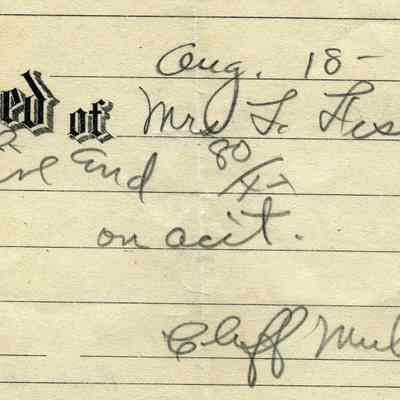 Aug. 18-
ed of Mrs F. Hes
ive and 80/xx
on acct.
Cliff Mul